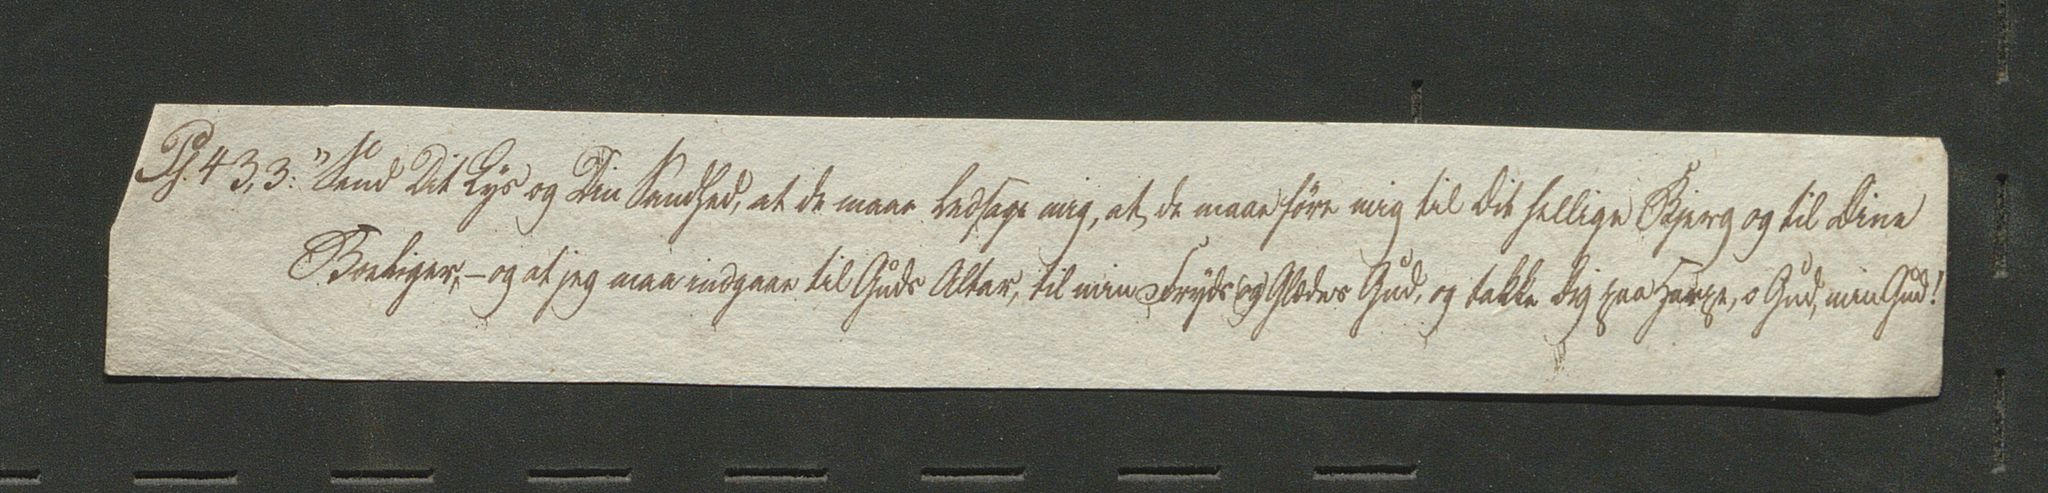 Ps. 43,3: "Send Dit Lys og Din Sandhed, at de maae ledsage mig, at de maae føre mig til dit hellige Bjerg og til dine
Boeliger, – og at jeg maa indgaae til Guds Altar, til min Fryds og Glædes Gud, og takke dig paa Harpe, o Gud, min Gud!